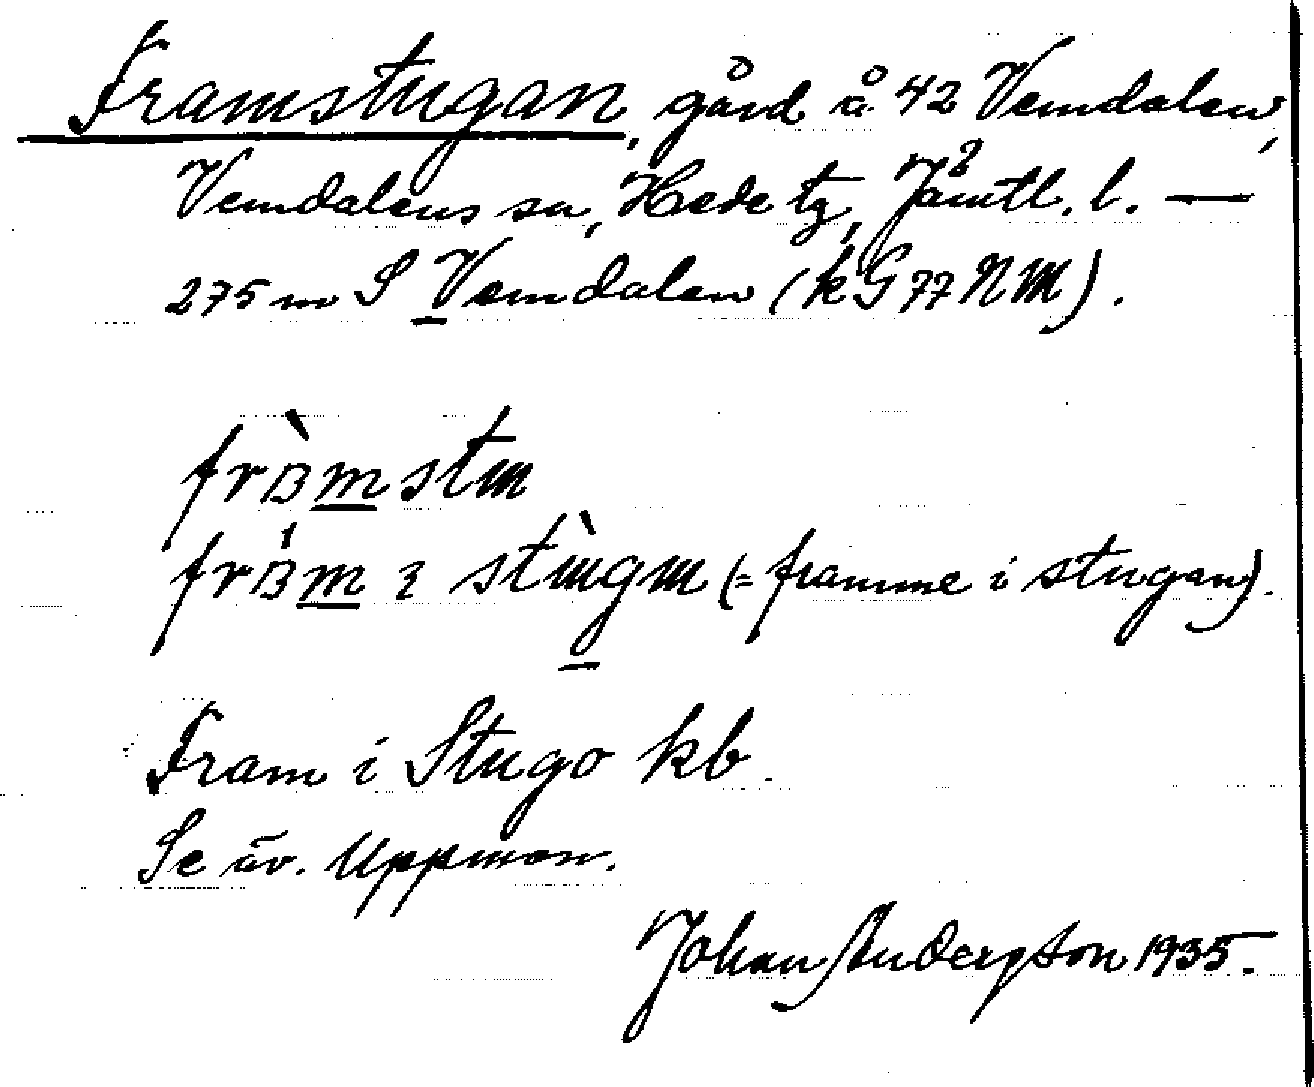 Framstugan, gård å 42 Vemdalen,
Vemdalens sn, Hede tg, Jämtl. l. —
275 m S Vemdalen (kG77NM).
i (= framme i stugan).
Fram i Stugo kb.
Se äv. Uppmon.
Johan Anderszon 1935.